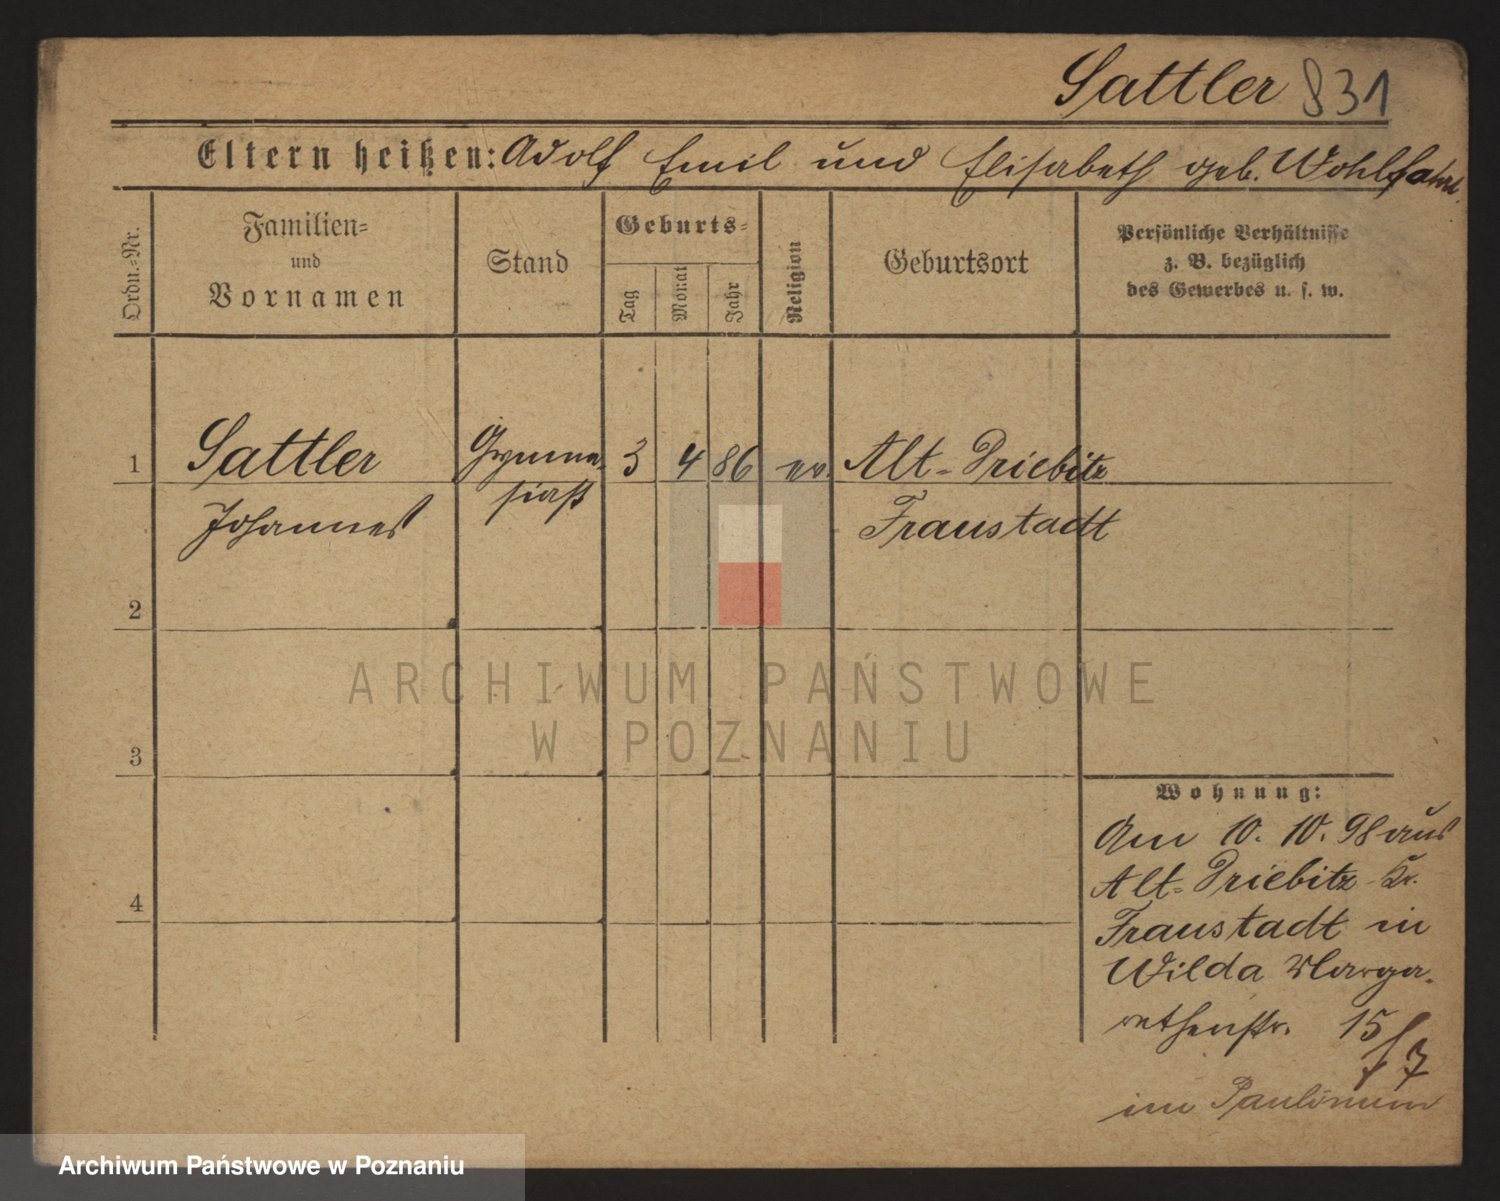 Sattler 831
Eltern heißen: Adolf Emil und Elisabeth geb. Wohlfahrt.
Ordn.-Nr.
Familien-
und
Vornamen
Stand
Geburts-
Tag
Monat
Jahr
Religion
Geburtsort
Persönliche Verhältnisse
z. B. bezüglich
des Gewerbes u. s. w.
1 Sattler Gymna- 3 4 86 ev. Alt-Driebitz
Johannes siast Fraustadt
2
3
4
Wohnung:
Am 10. 10. 98 aus
Alt-Driebitz Kr.
Fraustadt in
Wilda Marga-
rethenstr. 15
im Paulinum
ARCHIWUM PAŃSTWOWE
W POZNANIU
Archiwum Państwowe w Poznaniu